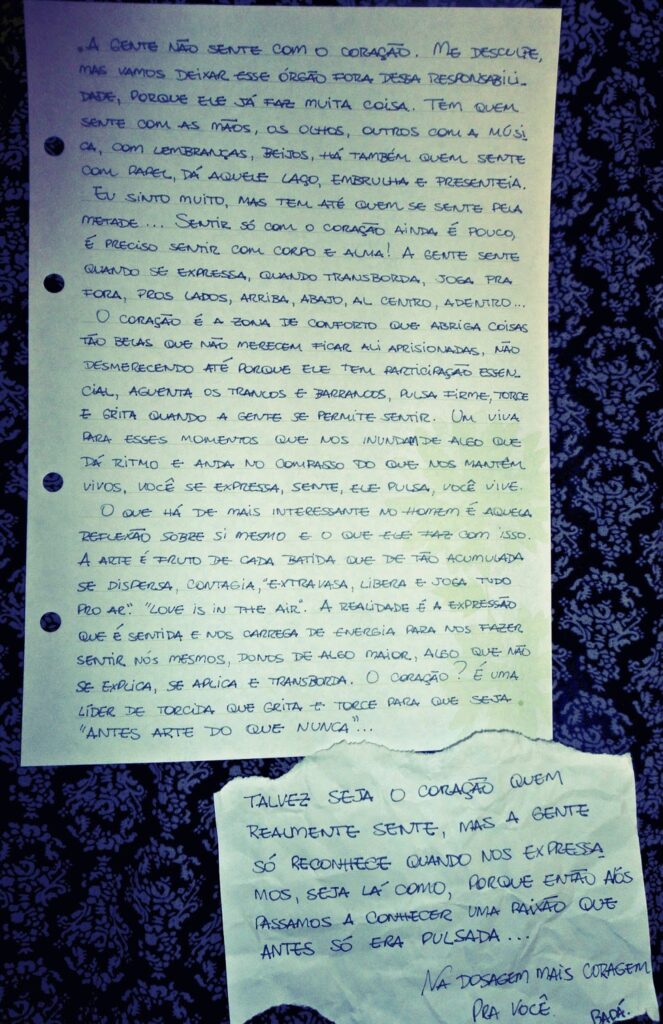 . A GENTE NÃO SENTE COM O CORAÇÃO. ME DESCULPE,
MAS VAMOS DEIXAR ESSE ÓRGÃO FORA DESSA RESPONSABILI-
DADE, PORQUE ELE JÁ FAZ MUITA COISA. TEM QUEM
SENTE COM AS MÃOS, OS OLHOS, OUTROS COM A MÚSI-
CA, COM LEMBRANÇAS, BEIJOS, HÁ TAMBÉM QUEM SENTE
COM PAPEL, DÁ AQUELE LAÇO, EMBRULHA E PRESENTEIA.
EU SINTO MUITO, MAS TEM ATÉ QUEM SE SENTE PELA
METADE... SENTIR SÓ COM O CORAÇÃO AINDA É POUCO,
É PRECISO SENTIR COM CORPO E ALMA! A GENTE SENTE
QUANDO SE EXPRESSA, QUANDO TRANSBORDA, JOGA PRA
FORA, PROS LADOS, ARRIBA, ABAJO, AL CENTRO, ADENTRO...
O CORAÇÃO É A ZONA DE CONFORTO QUE ABRIGA COISAS
TÃO BELAS QUE NÃO MERECEM FICAR ALI APRISIONADAS, NÃO
DESMERECENDO ATÉ PORQUE ELE TEM PARTICIPAÇÃO ESSEN-
CIAL, AGUENTA OS TRANCOS E BARRANCOS, PULSA FIRME, TORCE
E GRITA QUANDO A GENTE SE PERMITE SENTIR. UM VIVA
PARA ESSES MOMENTOS QUE NOS INUNDAM DE ALGO QUE
DÁ RITMO E ANDA NO COMPASSO DO QUE NOS MANTÉM
VIVOS, VOCÊ SE EXPRESSA, SENTE, ELE PULSA, VOCÊ VIVE.
O QUE HÁ DE MAIS INTERESSANTE NO HOMEM É AQUELA
REFLEXÃO SOBRE SI MESMO E O QUE ELE FAZ COM ISSO.
A ARTE É FRUTO DE CADA BATIDA QUE DE TÃO ACUMULADA
SE DISPERSA, CONTAGIA, "EXTRAVASA, LIBERA E JOGA TUDO
PRO AR". "LOVE IS IN THE AIR". A REALIDADE É A EXPRESSÃO
QUE É SENTIDA E NOS CARREGA DE ENERGIA PARA NOS FAZER
SENTIR NÓS MESMOS, DONOS DE ALGO MAIOR, ALGO QUE NÃO
SE EXPLICA, SE APLICA E TRANSBORDA. O CORAÇÃO? É UMA
LÍDER DE TORCIDA QUE GRITA E TORCE PARA QUE SEJA
"ANTES ARTE DO QUE NUNCA"...
TALVEZ SEJA O CORAÇÃO QUEM
REALMENTE SENTE, MAS A GENTE
SÓ RECONHECE QUANDO NOS EXPRESSA
MOS, SEJA LÁ COMO, PORQUE ENTÃO NÓS
PASSAMOS A CONHECER UMA PAIXÃO QUE
ANTES SÓ ERA PULSADA...
NA DOSAGEM MAIS CORAGEM
PRA VOCÊ. BADÁ.